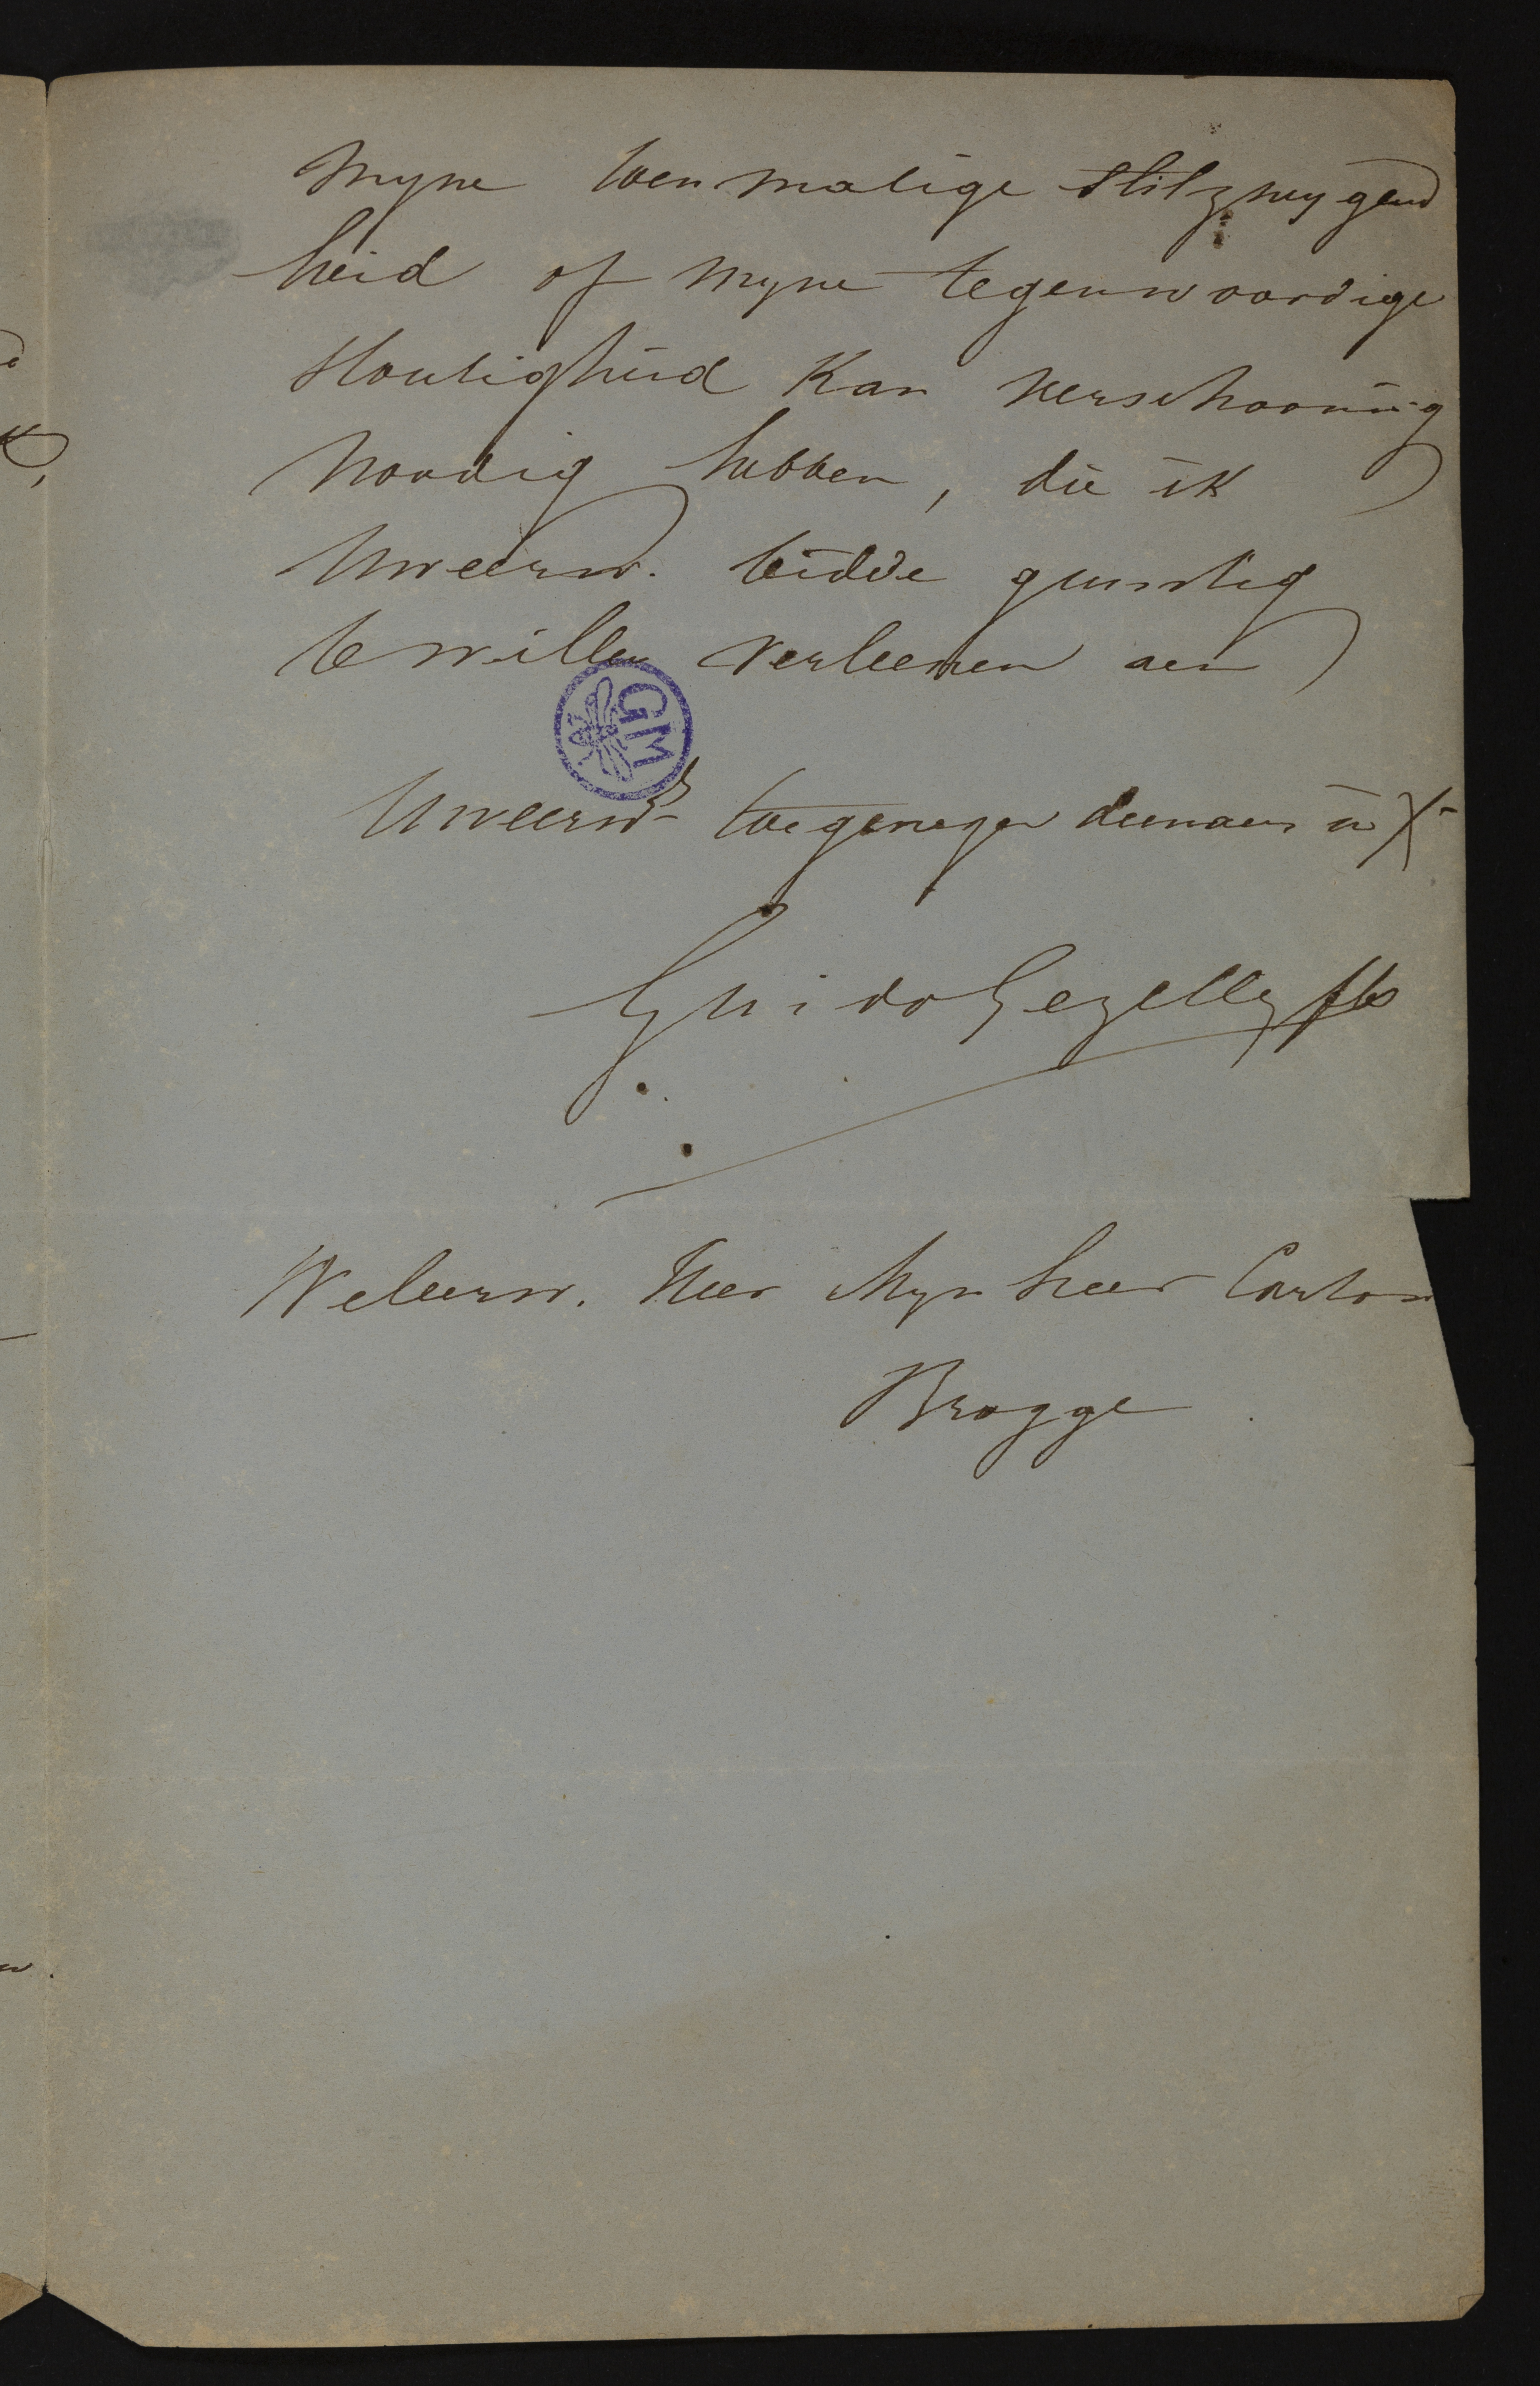 myne toenmalige stilzwygend
heid of myne tegenwoordige
stoutigheid kan verschooning
noodig hebben, die ik
Uweerw. bidde gunstig
te willen verleenen aen
GM
Uweerws toegenegen dienaer in X
Guido Gezelle
Weleerw. Heer Mynheer Carton
Brugge